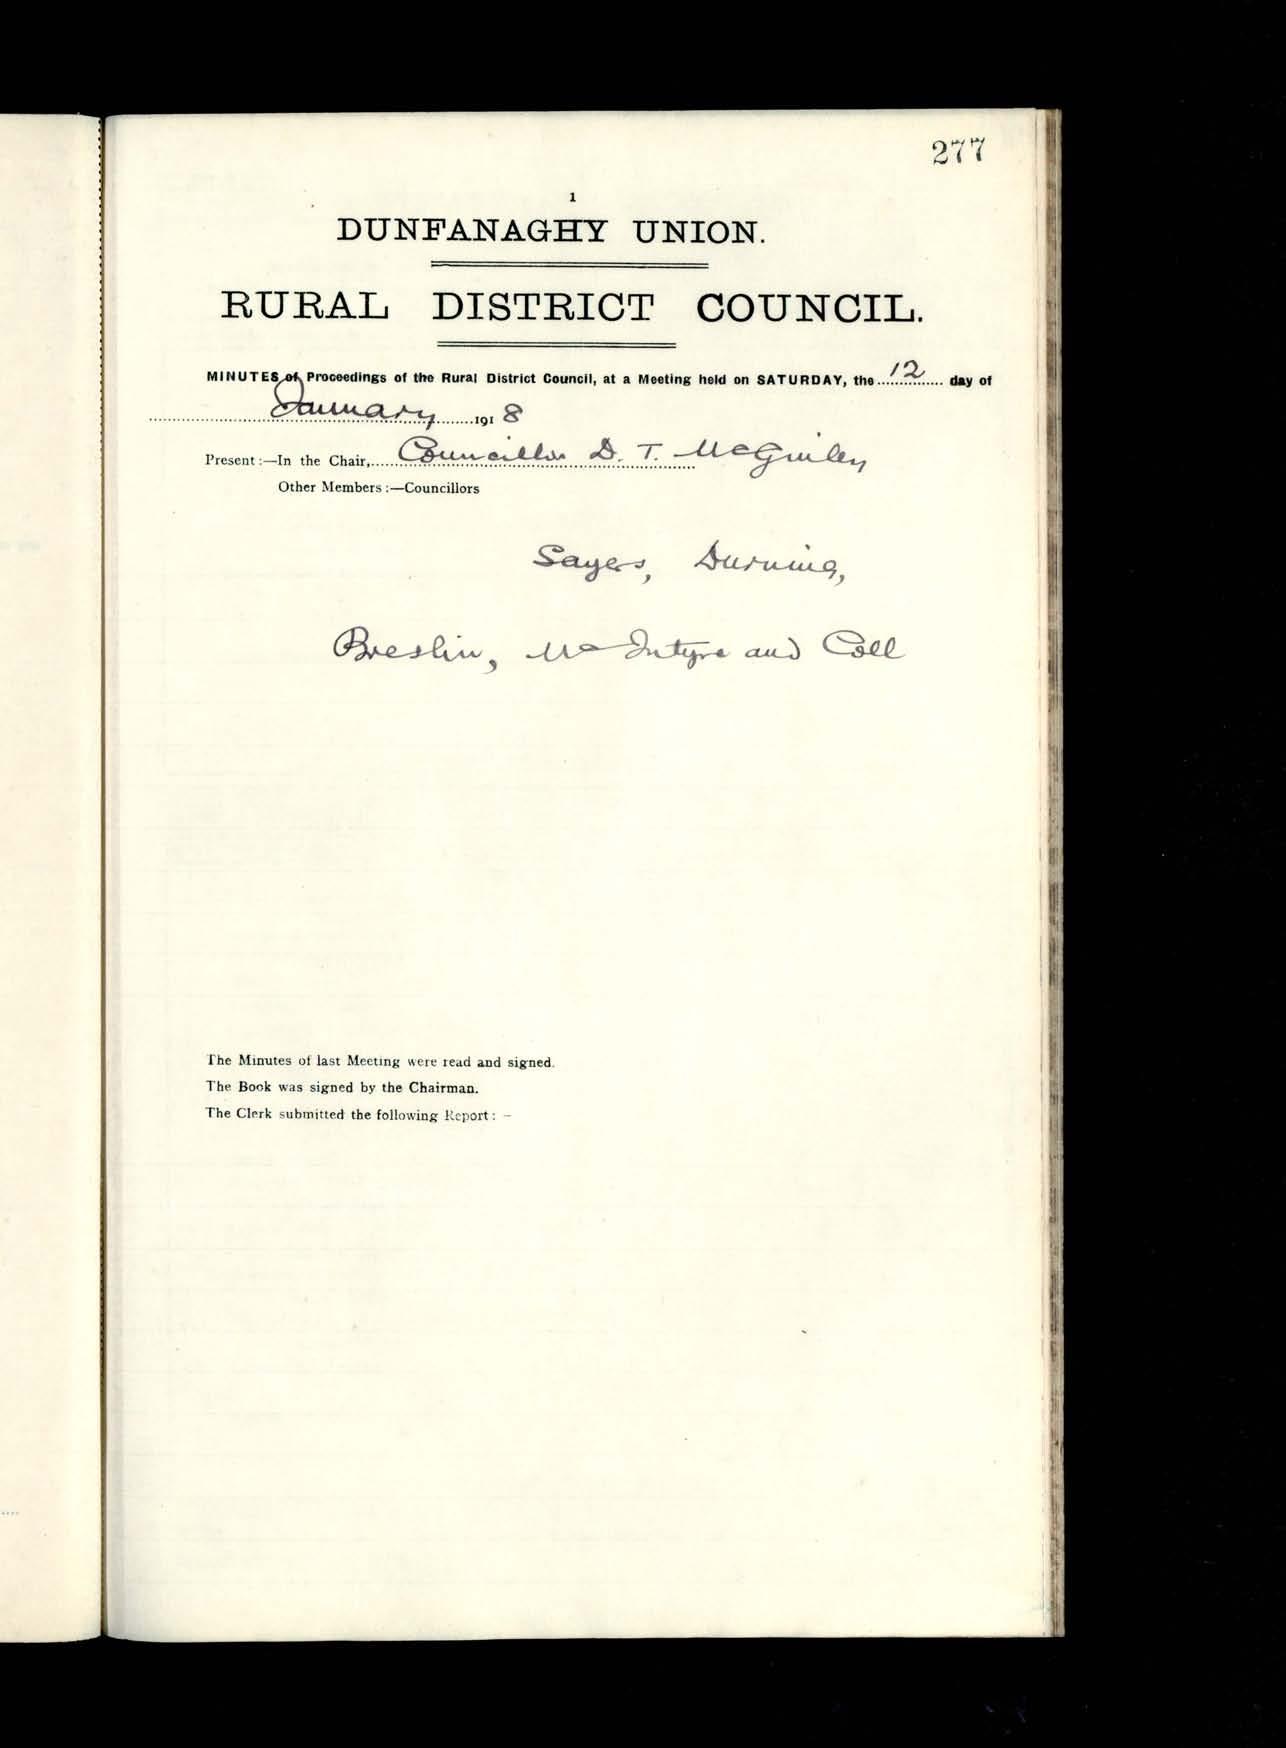 277
1
DUNFANAGHY UNION.
RURAL DISTRICT COUNCIL.
MINUTES of Proceedings of the Rural District Council, at a Meeting held on SATURDAY, the 12 day of
January 1918
Present :—In the Chair, Councillor D. T. McGinley
Other Members :—Councillors
Sayers, Durning,
Breslin, McIntyre and Coll
The Minutes of last Meeting were read and signed.
The Book was signed by the Chairman.
The Clerk submitted the following Report : —